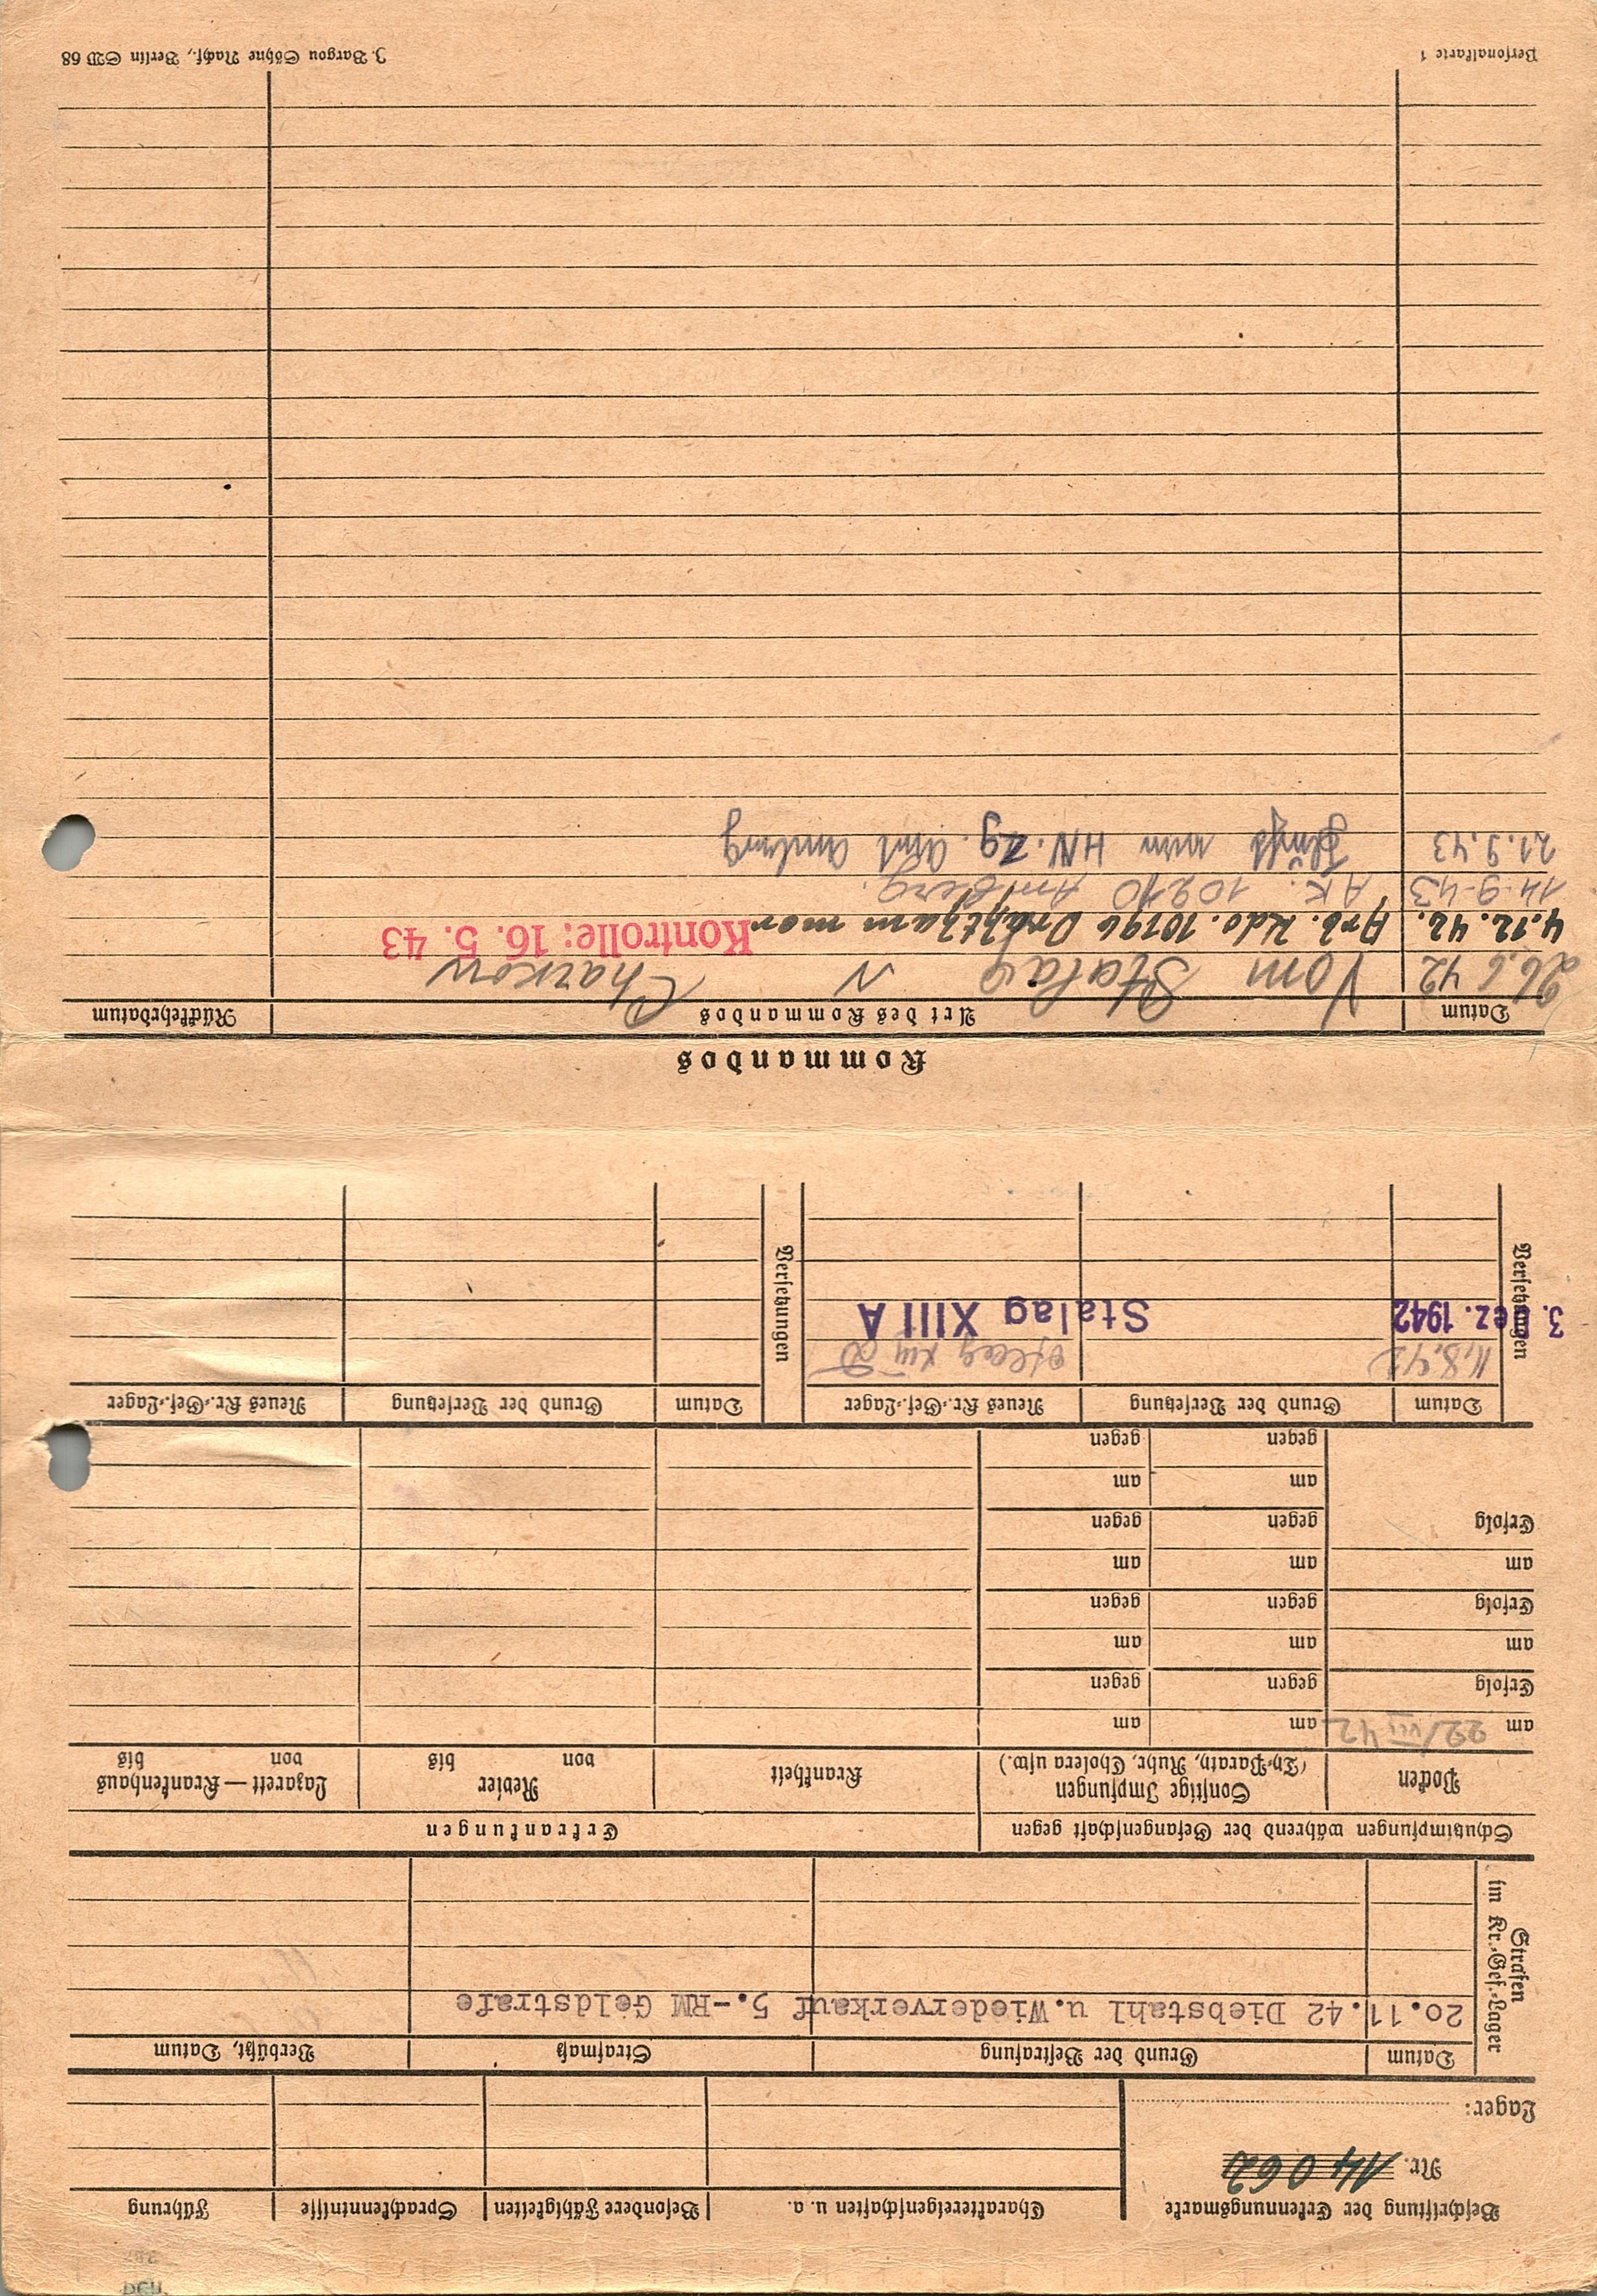 Beschriftung der Erkennungsmarke
Nr. 14062
Lager:
Charaktereigenschaften u. a.
Besondere Fähigkeiten
Sprachkenntnisse
Führung
Strafen
im Kr.-Gef.-Lager
Datum Grund der Bestrafung Strafmaß Verbüßt, Datum
20.11.42 Diebstahl u.Wiederverkauf 5.-RM Geldstrafe
Schutzimpfungen während der Gefangenschaft gegen
Erkrankungen
Pocken
Sonstige Impfungen
(Ty-Paraty, Ruhr, Cholera usw.)
Krankheit
Revier
von bis
Lazarett — Krankenhaus
von bis
am 22/VII 42 am am
Erfolg gegen gegen
am am am
Erfolg gegen gegen
am am am
Erfolg gegen gegen
am am
gegen gegen
Versetzungen
Datum Grund der Versetzung Neues Kr.-Gef.-Lager
Versetzungen
Datum Grund der Versetzung Neues Kr.-Gef.-Lager
11.8.42 XIII D
3. Dez. 1942 Stalag XIII A
Kommandos
Datum Art des Kommandos Rückkehrdatum
26.6 42 Vom Stalag Charkow
4.12.42. Arb. Kdo. 10196
Kontrolle: 16. 5. 43
14-9-43 AK. 10210 Amberg.
21.9.43 HN. Zg. Amt Amberg
Personalkarte 1
J. Bargou Söhne Nachf., Berlin SW 68